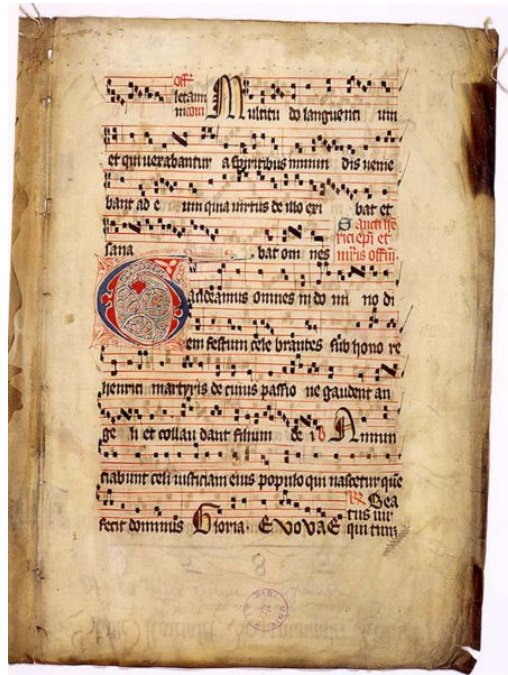 Multitu do languenti um
et qui uexabantur a spiritibus inmun dis uenie
bant ad e um quia uirtus de illo exi bat et
sana bat om nes
Sancti
rici epi et
Gaudeamus omnes in do mi no di
em festum cele brantes sub hono re
henrici martyris de cuius passio ne gaudent an
ge li et collau dant filium de i Annun
ciabunt celi iusticiam eius populo qui nascetur que
fecit dominus Gloria. EVOVAE
Bea
tus uir
qui tim